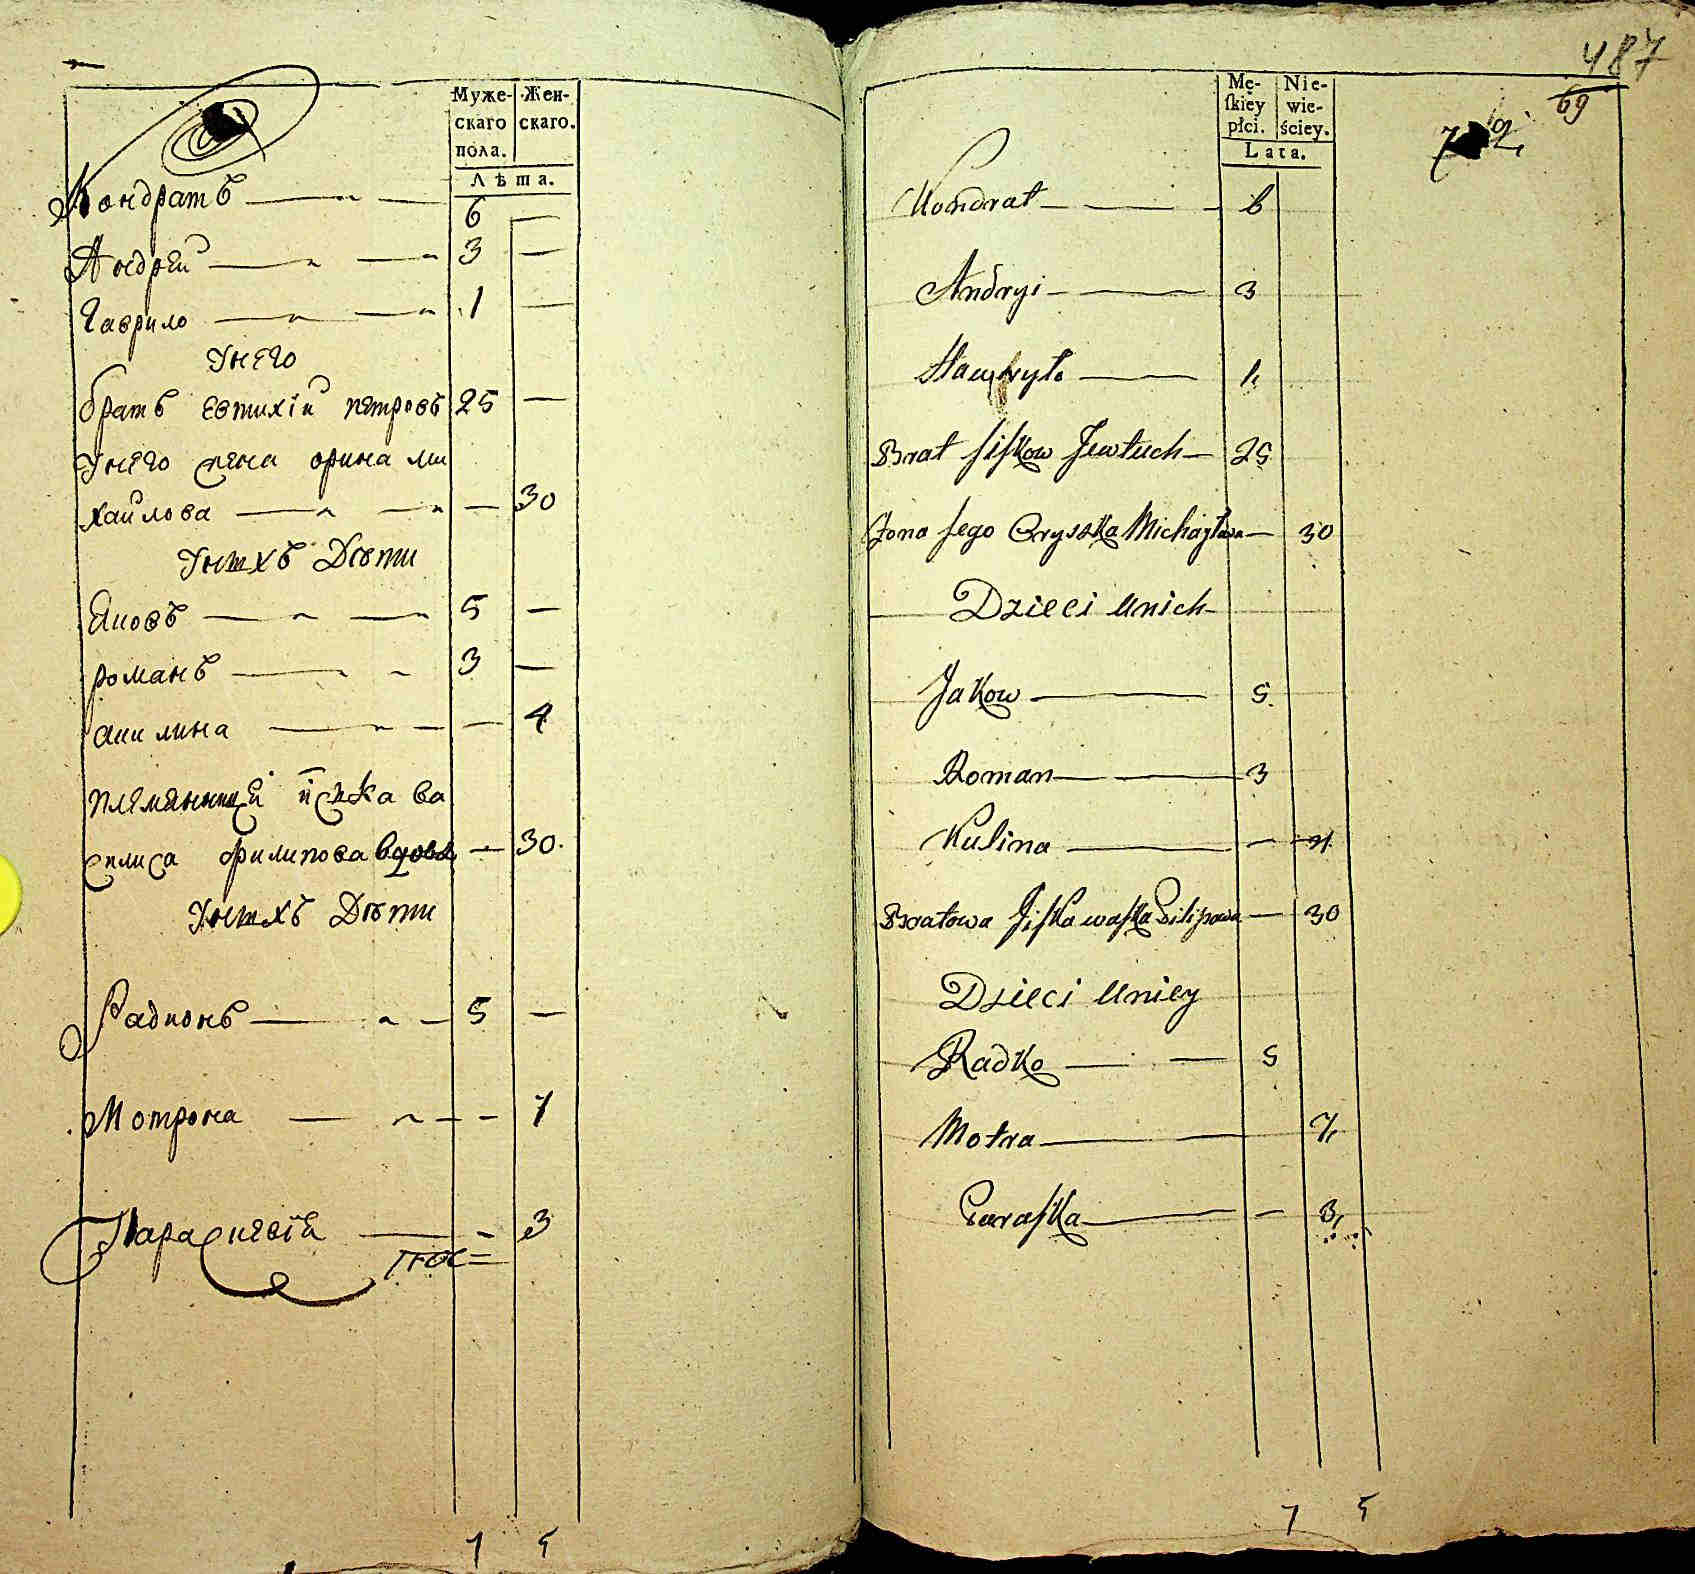 Муже-
скаго
пола.
Жен-
скаго.
Лѣта.
Кондратъ 6 —
Андрей 3 —
Гаврило 1 —
У него
братъ Евтихій Петровъ 25 —
У него жена Орина Ми
хайлова — 30
У нихъ Дѣти
Яковъ 5 —
Романъ 3 —
Акилина — 4
силиса Филипова вдова — 30
У нихъ Дѣти
Радионъ 5 —
Мотрона — 7
Парасковія — 3
7 5
487
69
Mę-
ſkiey
płci.
Nie-
wie-
ściey.
Lata.
Kondrat 6
Andryi 3
Hawryło 1
Brat Jewtuch 25
Zona Jego Oryszka Michayłowa — 30
Dzieci Unich
Jakow 5
Roman 3
Kulina — 4
Bratowa — 30
Dzieci Uniey
Radko 5
Motra 7
Paraſka — 3
7 5